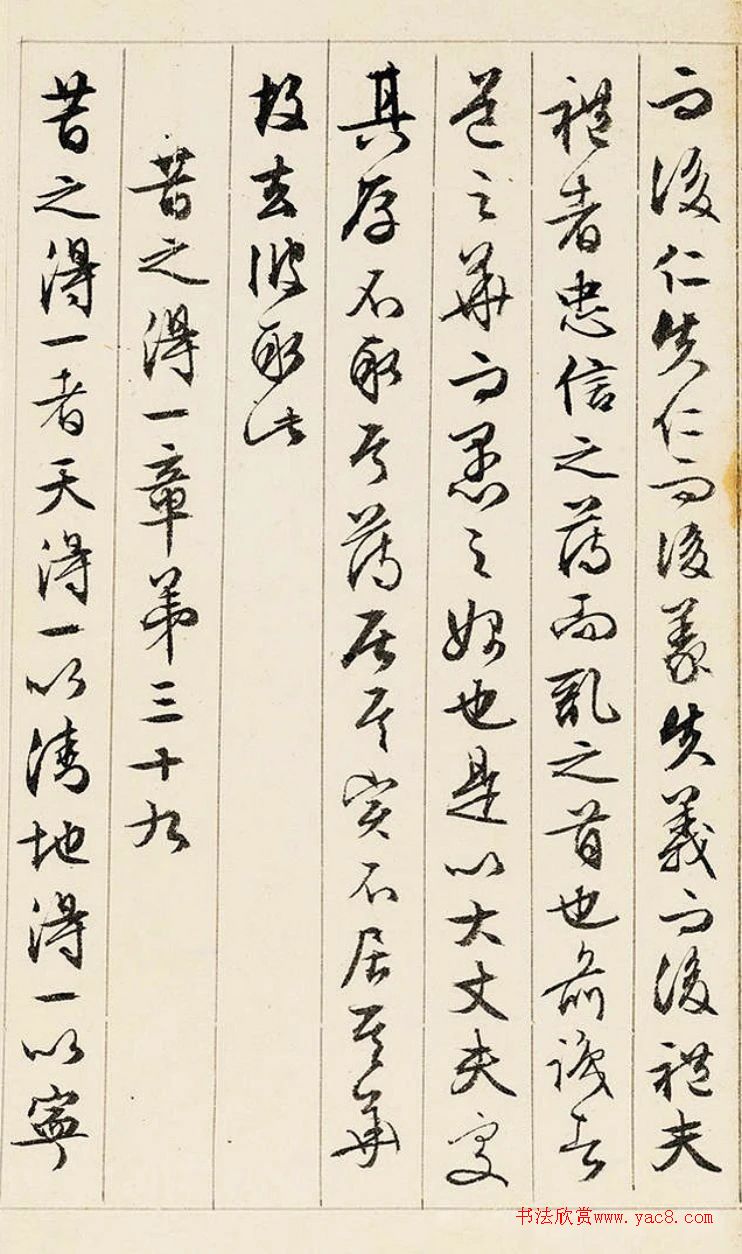 而後仁失仁而後義失義而後禮夫
禮者忠信之薄而亂之首也前識者
道之華而愚之始也是以大丈夫處
其厚不取其薄居其实不居其華
故去彼取此
昔之得一章第三十九
昔之得一者天得一以清地得一以寧
书法欣赏www.yac8.com